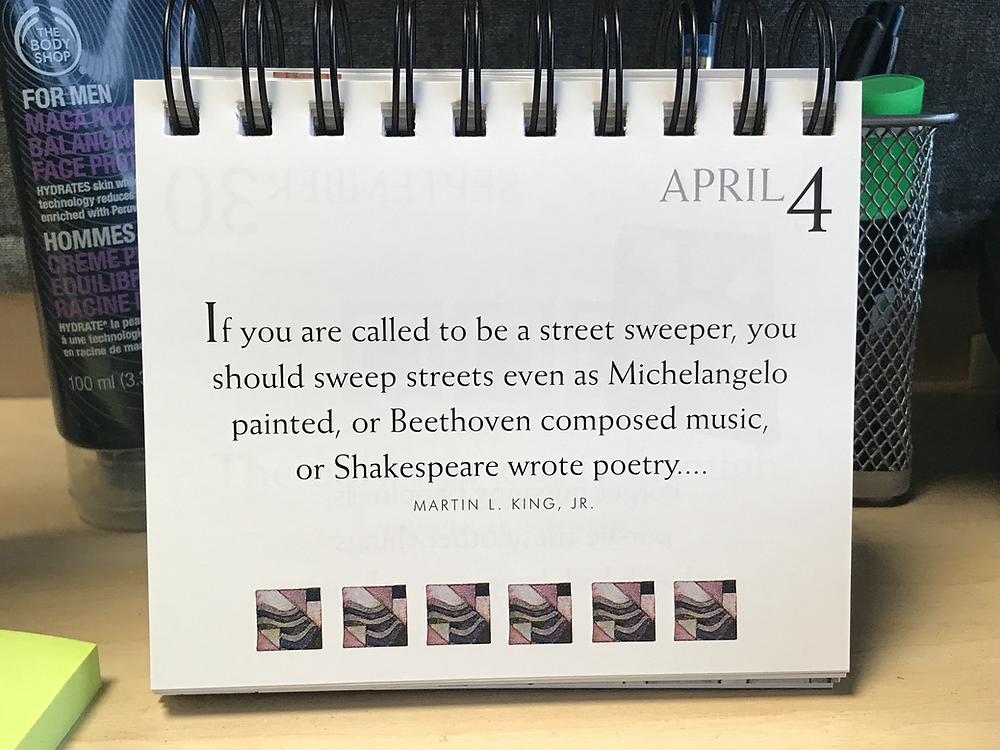 THE
BODY
SHOP
FOR MEN
MACA ROO
BALANCING
FACE PROT
HYDRATES skin wi
technology reduces
enriched with Peruv
HOMMES
CRÈME P
ÉQUILIBR
RACINE D
HYDRATE* la pea
à une technologi
en racine de mac
100 ml (3.3
APRIL 4
If you are called to be a street sweeper, you
should sweep streets even as Michelangelo
painted, or Beethoven composed music,
or Shakespeare wrote poetry....
MARTIN L. KING, JR.